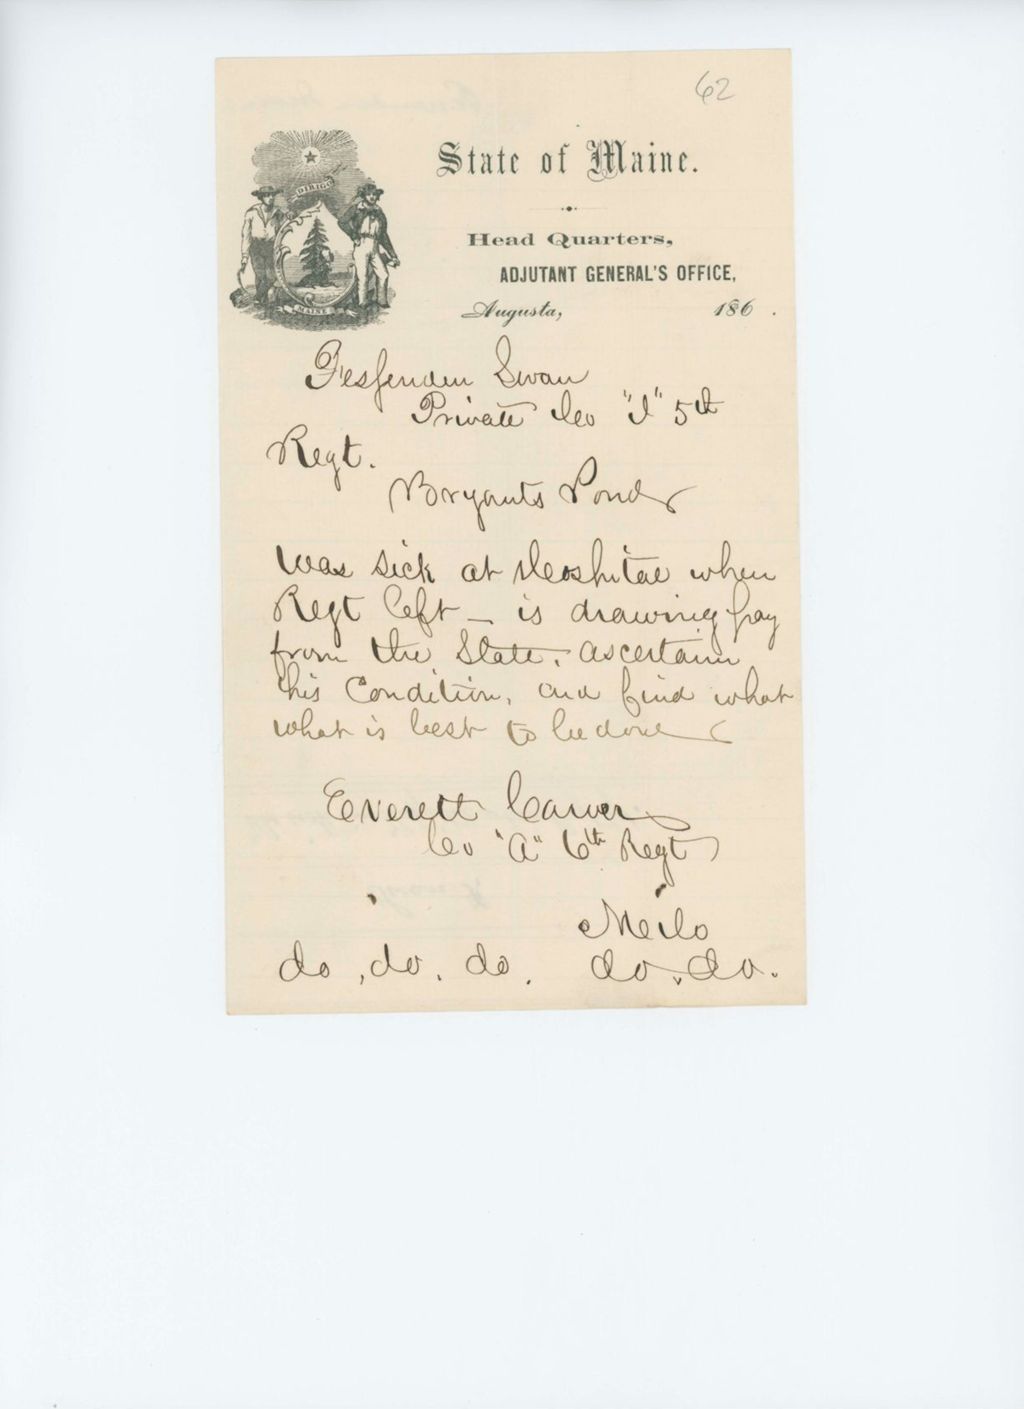 62
State of Maine.
Head Quarters,
ADJUTANT GENERAL'S OFFICE,
Augusta, 186 .
DIRIGO
MAINE
Fessenden Swan
Private Co "I" 5th
Regt.
Bryants Pond
was sick at Hoshital when
Regt left – is drawing pay
from the State. ascertain
his Condition, and find what
what is best to be done
Everett Carver
Co "A" 6th Regt
Meilo
do , do . do . do . do .